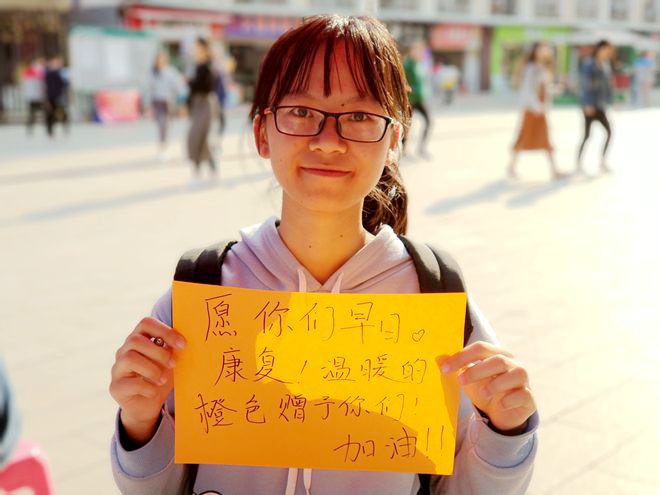 愿你们早日。
康复！温暖的
橙色赠予你们！
加油!!